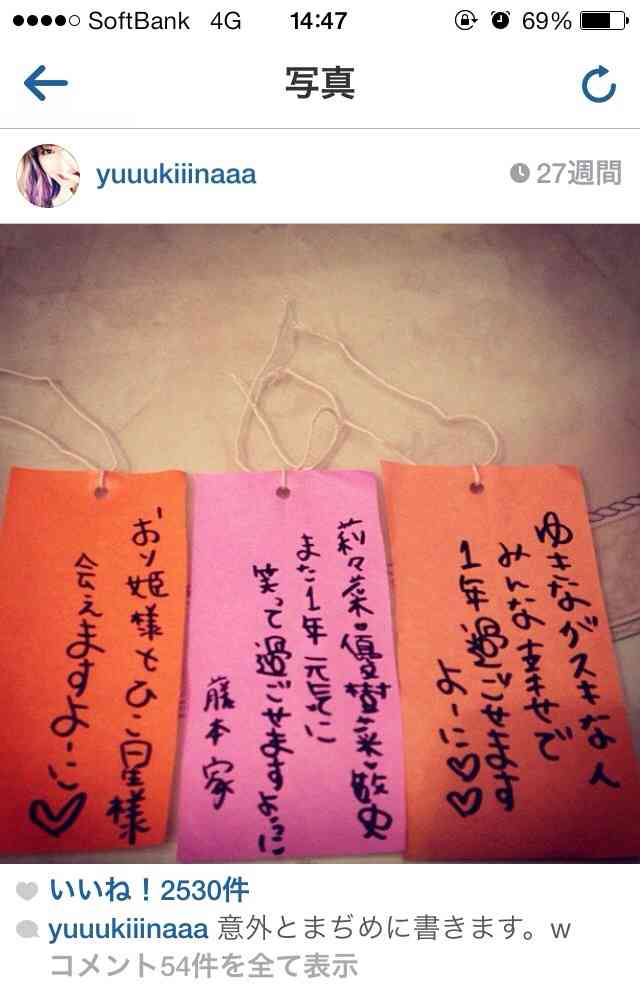 SoftBank 4G 14:47 69%
写真
yuuukiiinaaa 27週間
おり姫様とひこ星様
会えますよーに♡
莉々菜・優樹菜・敏史
また1年元気に
笑って過ごせますよーに
藤本家
ゆきながスキな人
みんな幸せで
1年過ごせます
よーに♡♡
いいね!2530件
yuuukiiinaaa 意外とまぢめに書きます。w
コメント54件を全て表示